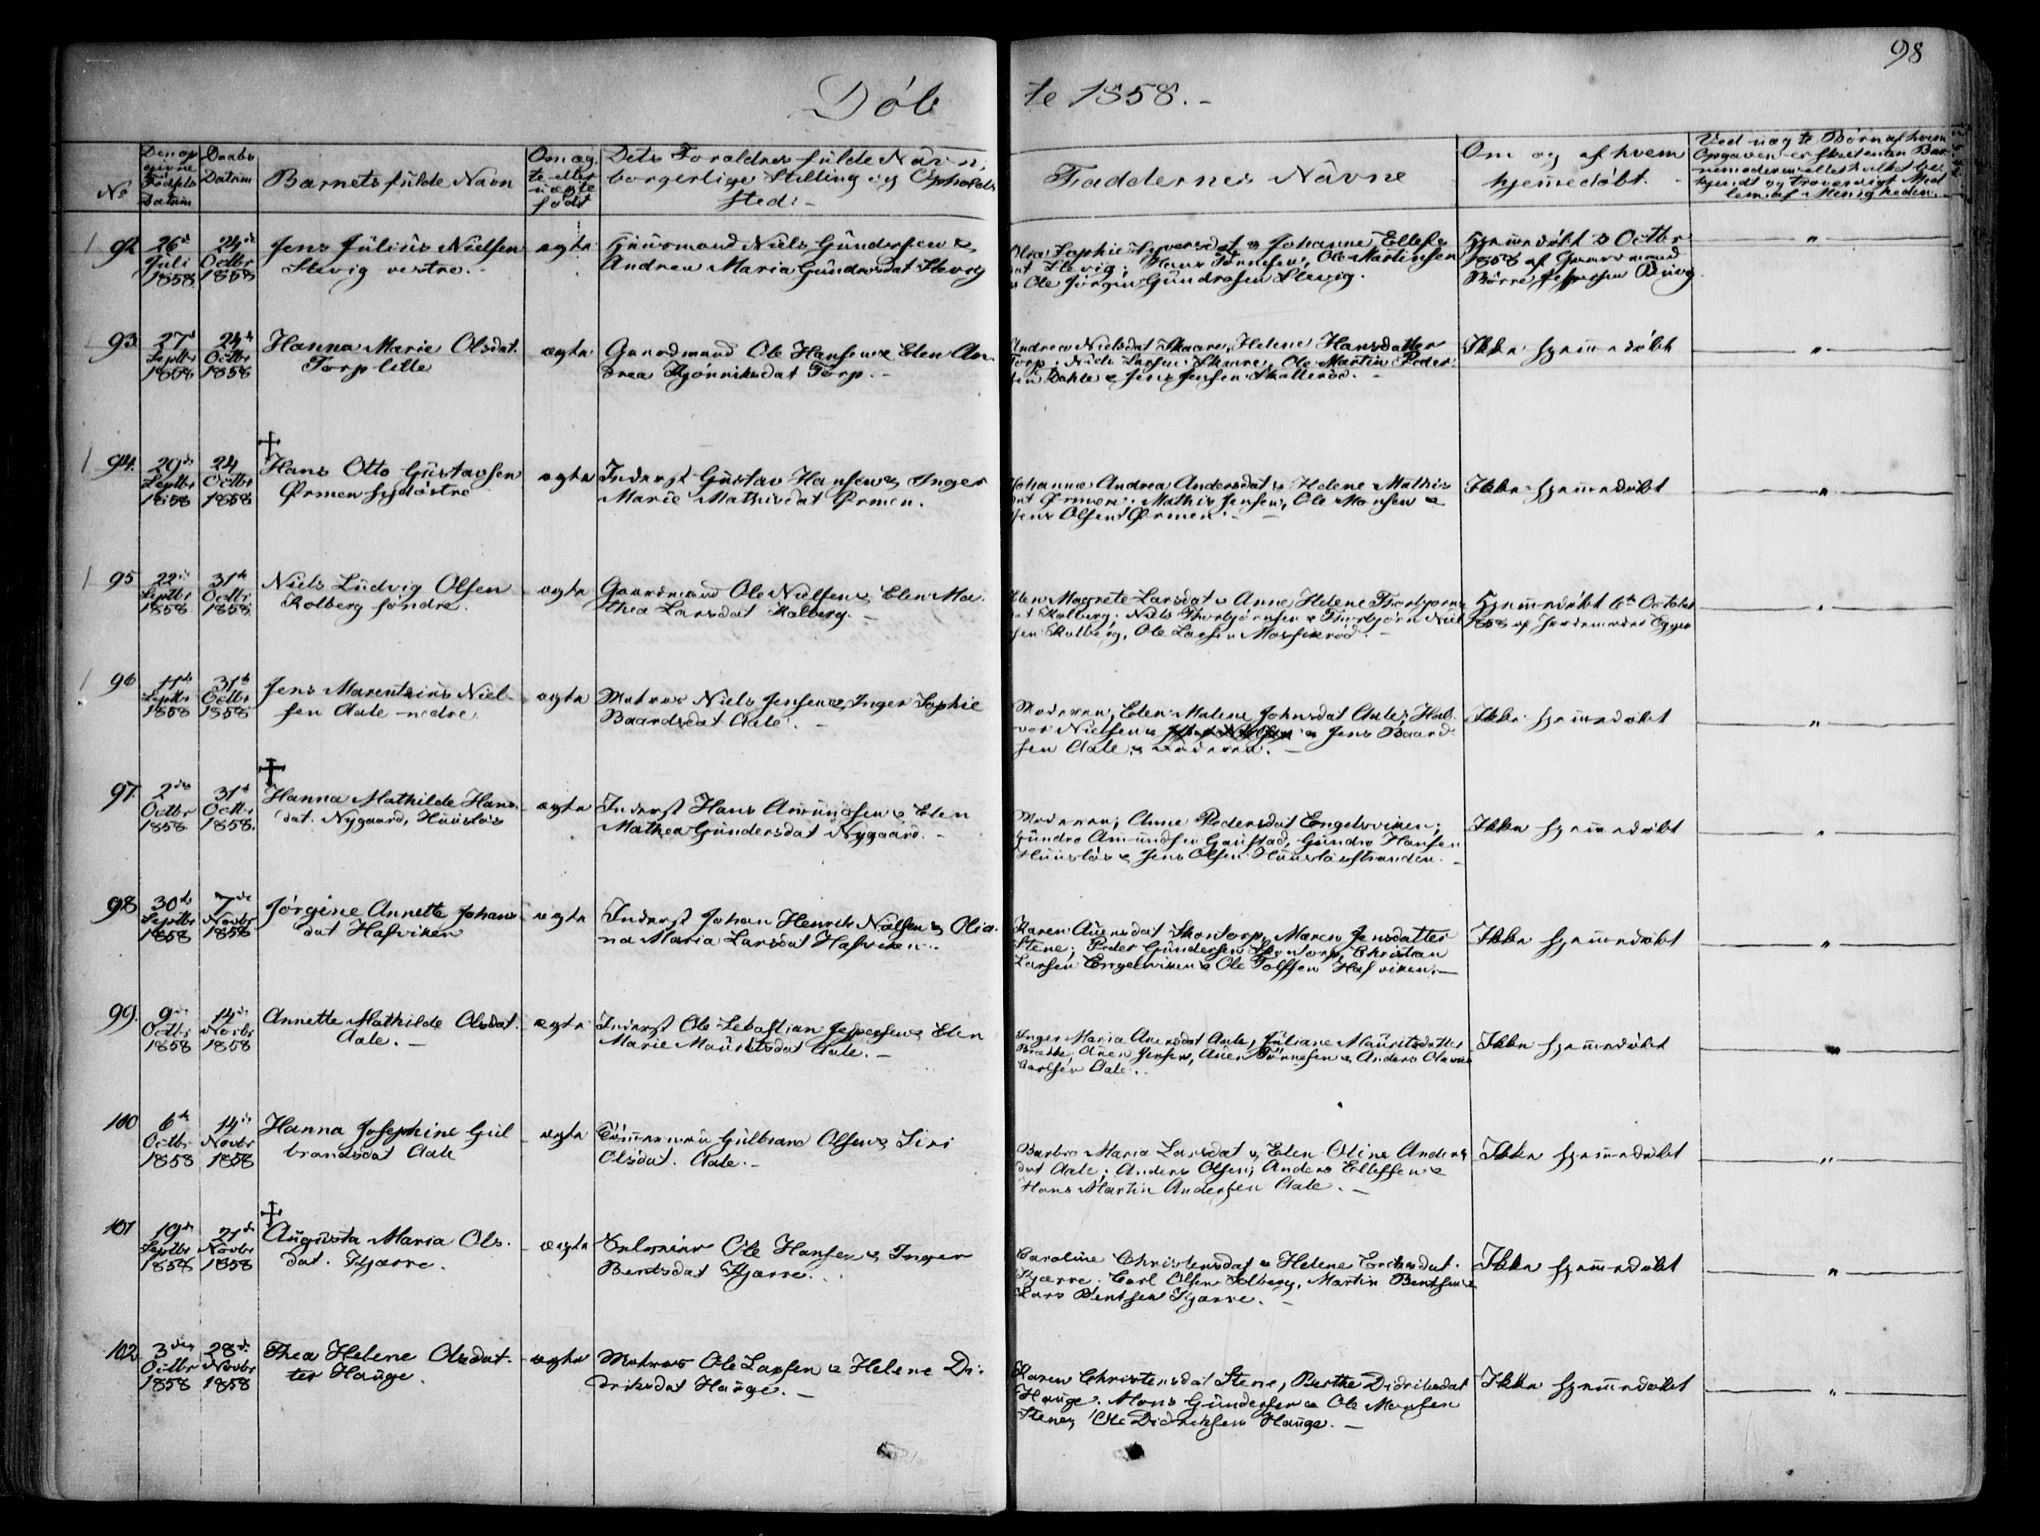 98
Döb te 1858.-
No
Den op givne Fødsels Datum
Daabs Datum
Barnets fulde Navn
Om æg te eller uægte født
Dets Forældres fulde Navn, borgerlige Stilling og Opholds sted.-
Faddernes Navne
Om og af hvem hjemmedøbt.
92 26de Juli 1858 24de Octbr 1858 Jens Julius Nielsen ægte Huusmand Niels Gundersen &
Slevig vestre.- Andrea Maria Gundersdat Slevig
Johanne Ellefs
dat Slevig; Hans Tørresen, Ole Martinsen
& Ole Jørgen Gundersen Slevig.
Hjemmedøbt 3 Octbr
1858 af Gaardmand
93 27de Septbr 1858 24de Octbr 1858 Hanna Marie Olsdat. ægte Gaardmand Ole Hansen & Elen An
Torp lille drea Kjønniksdat Torp.-
Andrea Nielsdat Skaare, Helene Hansdatter
Torp; Niels Larsen Skaare, Ole Martin Peder
sen Dahle & Jens Jensen Skallerød.-
Ikke hjemmedøbt
94. 29de Septbr 1858 24 Octbr 1858 Hans Otto Gustavsen ægte Inderst Gustav Hansen & Inger
Ørmen sydøstre Marie Mathisdat Ørmen.
Johanne Andrea Andersdat & Helene Mathis
dat Ørmen; Mathis Jensen, Ole Monsen &
Jens Olsen Ørmen.-
Ikke hjemmedøbt
95 22de Septbr 1858 31te Octbr 1858 Niels Ludvig Olsen ægte Gaardmand Ole Nielsen & Elen Ma
Kolberg søndre. thea Larsdat Kolberg.-
Elen Magrete Larsdat & Anne Helene Thorbjørns
dat Kolberg; Niels Thorbjørnsen & Thorbjørn Niel
sen Kolberg, Ole Larsen
Hjemmedøbt 6te October
1858 af Jordemoder
96 11te Septbr 1858 31te Octbr 1858 Jens Marentius Niel ægte Matros Niels Jensen & Inger Sophie
sen Aale nedre Baardsdat Aale.-
Moderen, Elen Malene Johnsdat Aale; Hal
vor Nielsen & Jens Baard
sen Aale & Faderen.-
Ikke hjemmedøbt
97. 2den Octbr 1858 31te Octbr 1858. Hanna Mathilde Hans ægte Inderst Hans Amundsen & Elen
dat. Nygaard, Huusløs Mathea Gundersdat Nygaard.-
Moderen; Anne Pedersdat Engelsviken;
Gundro Amundsen Gaustad, Gundro Hansen
Huusløs & Jens Olsen Huusløsstranden.-
Ikke hjemmedøbt
98 30te Septbr 1858 7de Novbr 1858 Jørgine Annette Johans ægte Inderst Johan Henrik Nielsen & Olia
dat Hafviken na Maria Larsdat Hafviken.-
Karen Auensdat Skontorp, Maren Jensdatter
Stene; Peder Gundersen Skontorp, Christian
Larsen Engelsviken & Ole Tolfsen Hafviken.-
Ikke hjemmedøbt
99. 9de Octbr 1858 14de Novbr 1858 Annette Mathilde Olsdat. ægte Inderst Ole Sebastian Jespersen & Elen
Aale.- Marie Mauritsdat Aale.-
Inger Maria Auensdat Aale, Juliane Mauritsdatter
Auen Jensen, Auen Tørresen & Anders Olaves
Carlsen Aale.-
Ikke hjemmedøbt
100 6te Octbr 1858 14de Novbr 1858 Hanna Josephine Gul ægte Tømmermand Gulbrand Olsen & Siri
brandsdat Aale Olsdat. Aale.-
Barbro Maria Larsdat & Elen Oline Anders
dat Aale; Anders Olsen, Anders Ellefsen &
Hans Martin Andersen Aale.-
Ikke hjemmedøbt
101 19de Septbr 1858 21de Novbr 1858 Augusta Maria Ols ægte Selveier Ole Hansen & Inger
dat. Kjærre. Bentsdat Kjærre.
Caroline Christensdat & Helene Eriksdat.
Kjærre. Carl Olsen Solberg, Martin Bentsen &
Lars Bentsen Kjærre.-
Ikke hjemmedøbt
102. 3den Octbr 1858 28de Novbr 1858 Thea Helene Olsdat ægte Matros Ole Larsen & Helene Di
ter Hauge. driksdat Hauge.-
Karen Christensdat Stene, Berthe Didriksdat
Hauge. Mons Gundersen & Ole Monsen
Stene, Ole Didriksen Hauge.-
Ikke hjemmedøbt